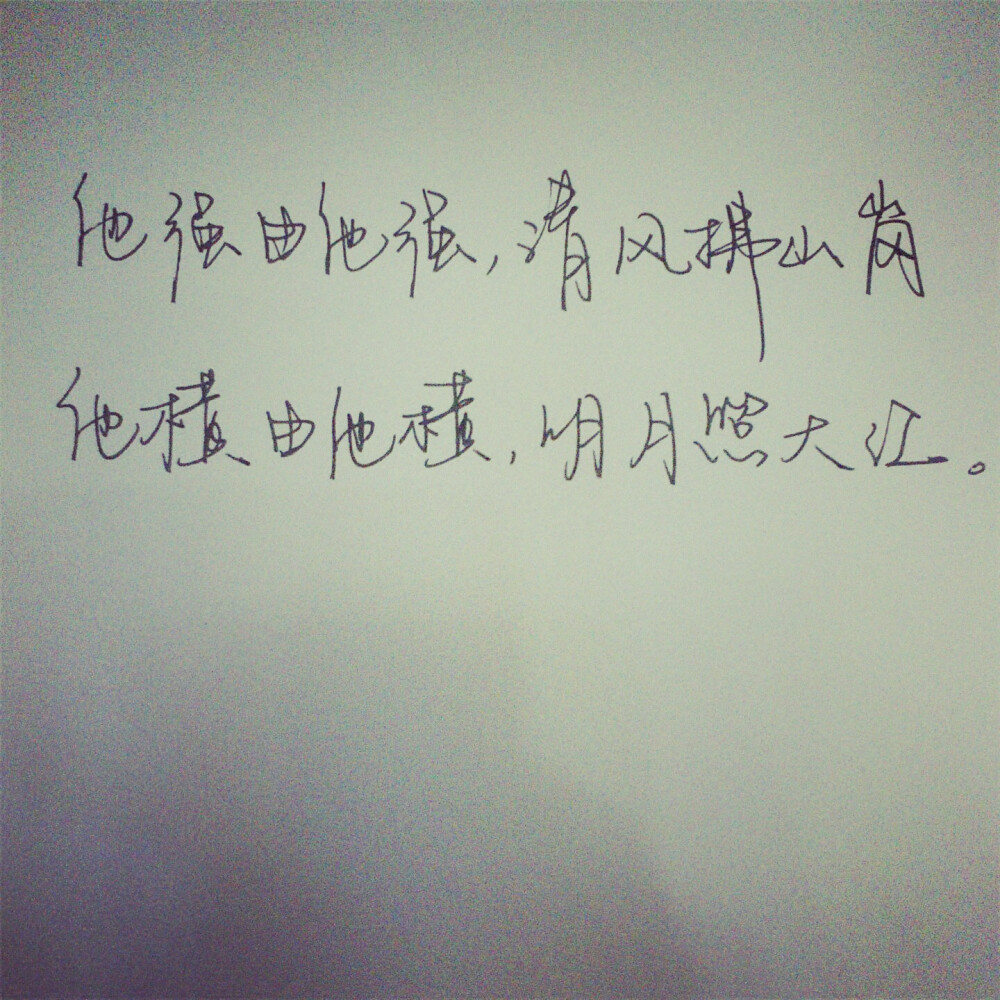 他强由他强,清风拂山岗
他横由他横,明月照大江。